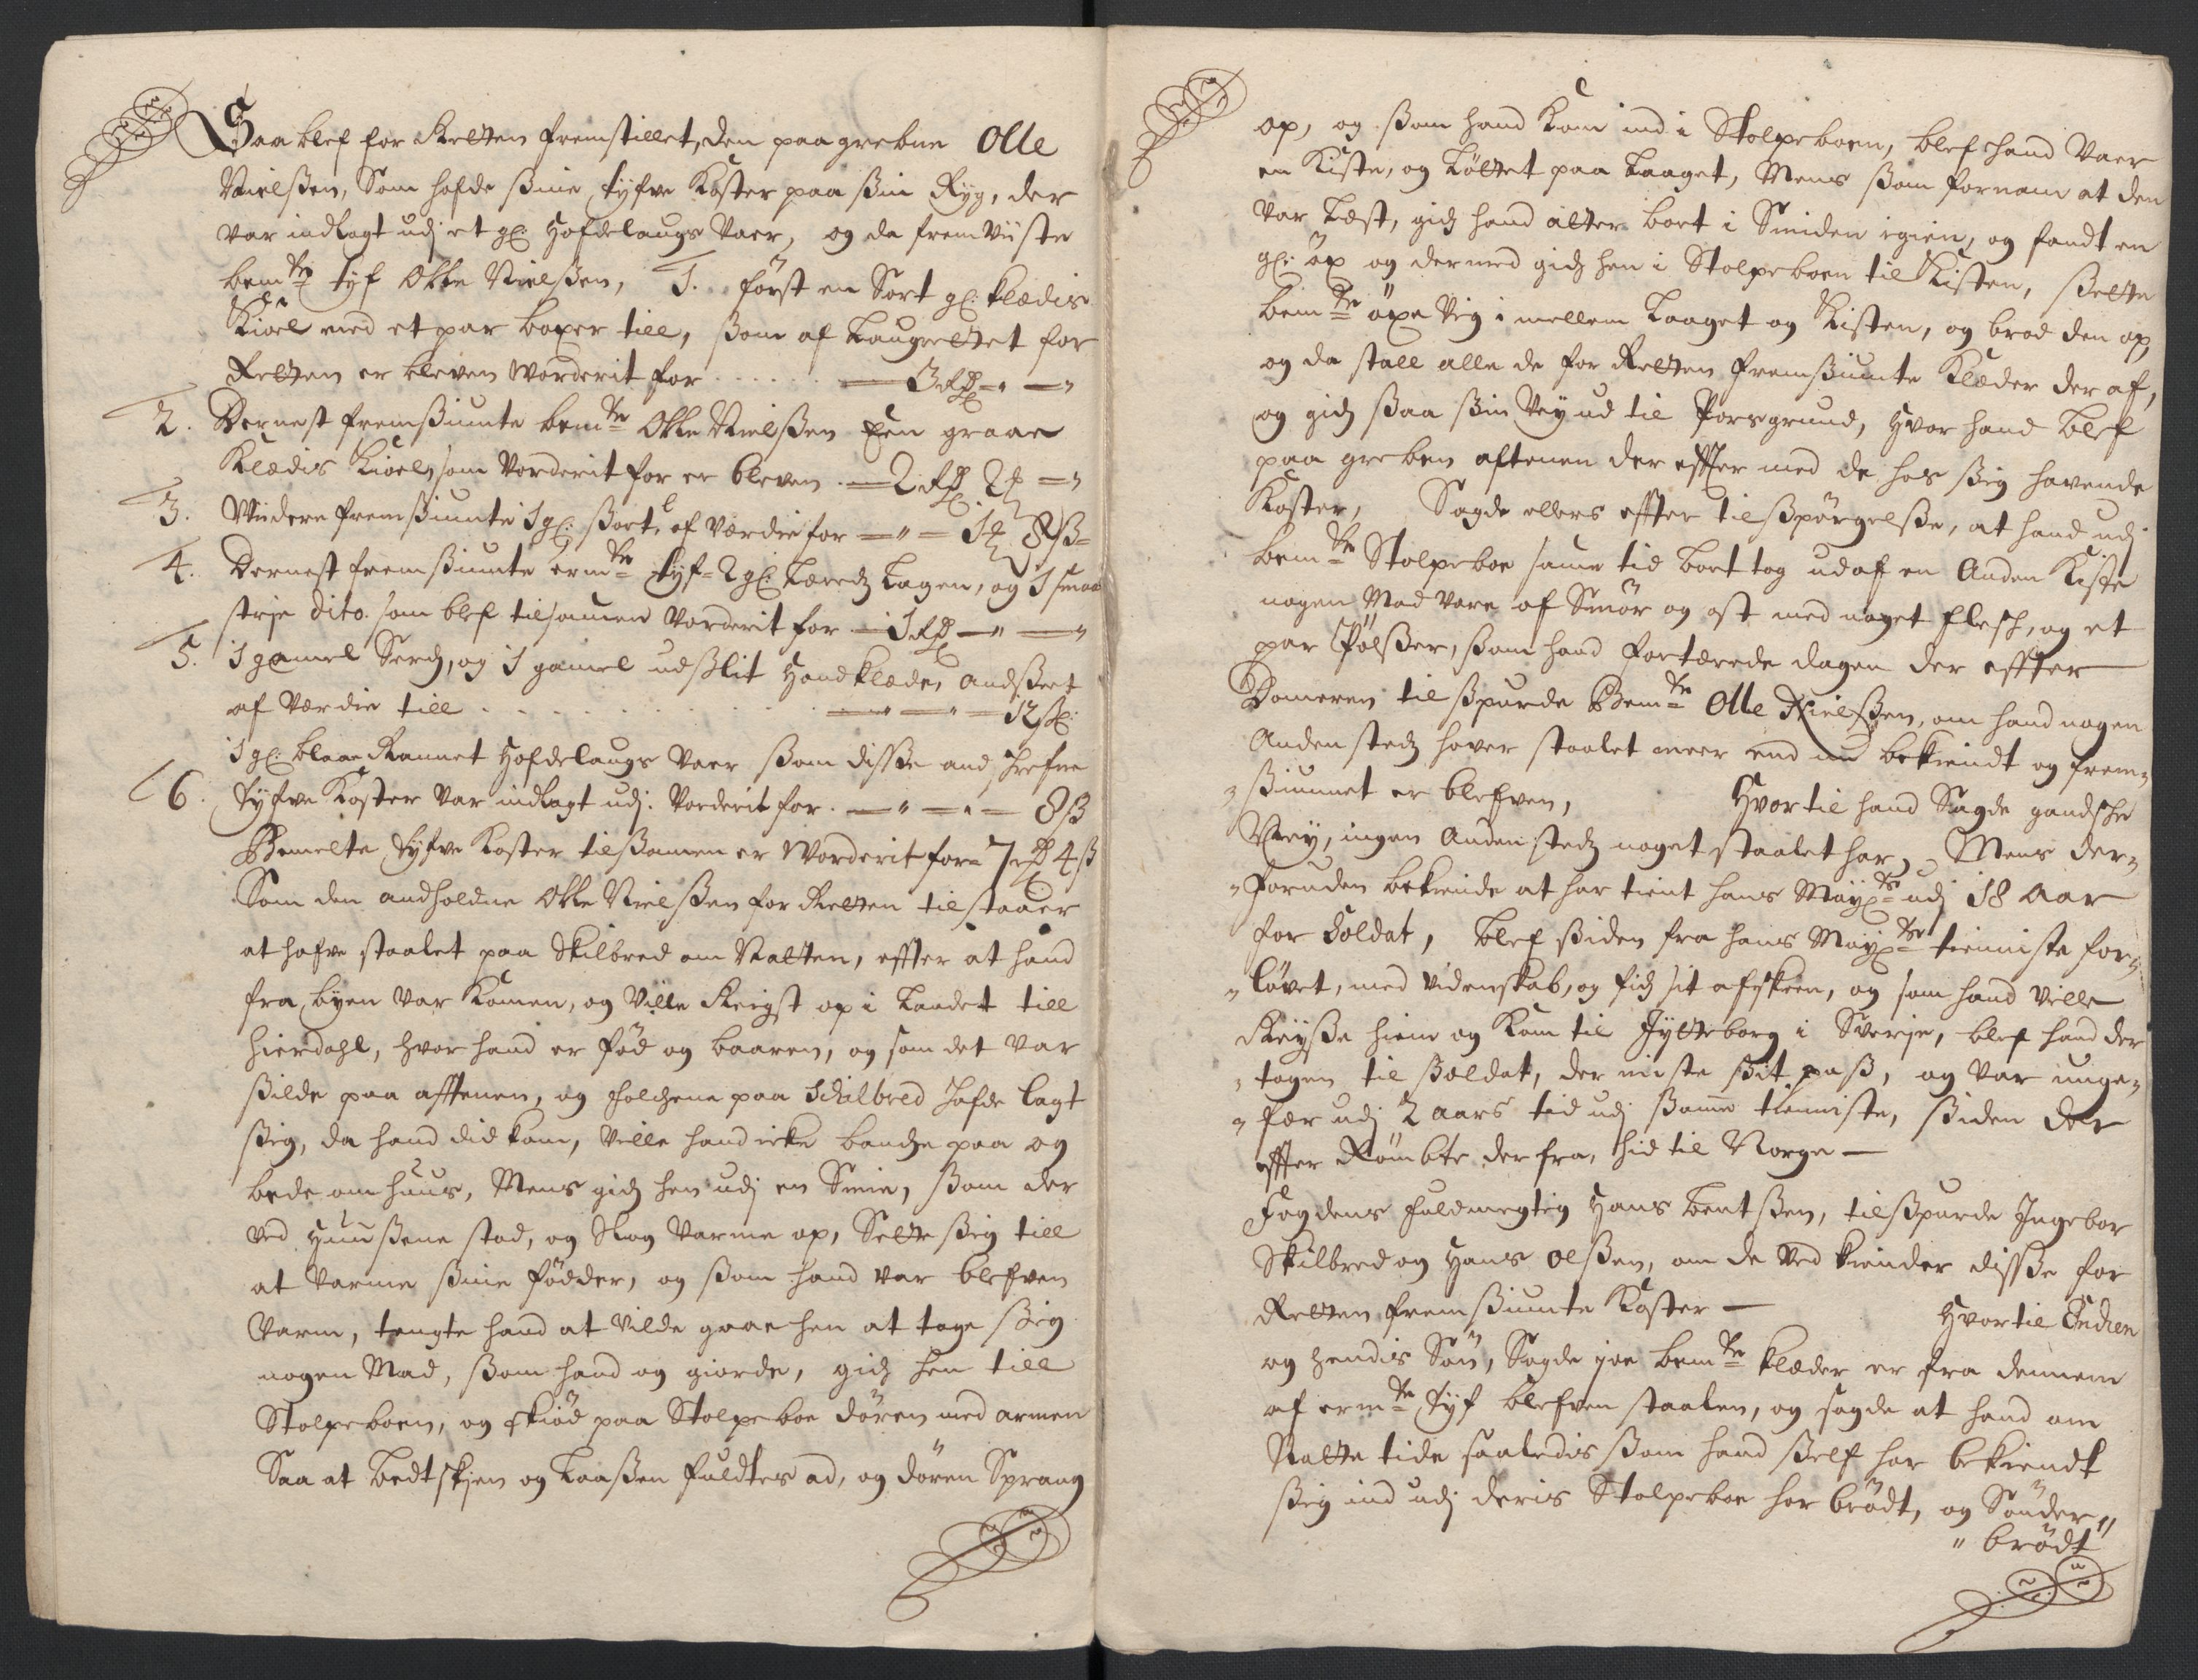 Saa blef for Retten fremstillet, den paagrebne Olle
Nielßen, Som hafde ßine tyfve Koster paa ßin Ryg, der
var indlagt udj et gl: Hofdelaugs Vaer, og da fremviiste
bemte tyf Olle Nielßen, 1. först en Sort gl: Klædis
Kioel med et par boxer till, ßom af Laugrettet for
Retten er bleven Worderit for ..... — 3 Rdr — " — "
2. Dernest fremßiunte bemte Olle Nielßen Een graae
Klædis Kioel, som Vorderit for er bleven — 2 Rdr 2 — "
3. Viidere fremßiunte 1 gl: ßort, af værdie for — " — 1 8 ß
4. Dernest fremßiunte ermte tyf 2 gl: Lærrets Lagen, og 1 smaa
strje dito. som blef tilsamen Vorderit for — 1 Rdr — " — "
5. 1 gamel Serch, og 1 gamel udßlit Handklæde, Andßeet
af Værdie till ..... — " — " — 12 ß:
1 gl: blaae Rannet Hofdelaugs Vaer ßom disße and
6. tyfve Koster var indlagt udj: Vorderit for — " — " — 8 ß
Bemelte tyfve Koster tilßamen er Worderit for 7 Rdr 4 ß
Som den andholdne Olle Nielßen for Retten tilstaaer
at hafve staalet paa Skilbred om Natten, effter at hand
fra byen var komen, og Ville Reigst op i Landet till
Hierdahl, hvor hand er föd og baaren, og som det var
ßilde paa afftenen, og folchene paa Schilbred hafde lagt
ßig, da hand did kom, ville hand icke bancke paa og
bede om Huus, Mens gich hen udj en Smie, ßom der
ved Huußene stod, og Slog Varme op, Sette ßig till
at varme ßine födder, og ßom hand var blefven
Varm, tengte hand at vilde gaae hen at tage ßig
nogen Mad, ßom hand og giorde, gich hen till
Stolpeboen, og skiöd paa Stolpeboe dören med armen
Saa at Ledtskjen og Laaßen fuldtes ad, og dören Sprang
op, og ßom hand kom ind i Stolpeboen, blef hand vaer
en Kiste, og Löttet paa Laaget, Mens ßom fornam at den
var Læst, gich hand atter bort i Smiden igien, og fandt en
gl: öx og dermed gich hen i Stolpeboen til Kisten, ßette
bemte öxe Eg i mellem Laaget og Kisten, og brød den op
og da stall alle de for Retten fremßiunte Klæder der af,
og gich ßaa ßin Vej ud til Porsgrund, hvor hand blef
paa greben aftenen der effter med de hos ßig havende
Koster, Sagde ellers effter tilßpörgelße, at hand udj
bemte Stolpeboe same tid bort tog ud af en Anden Kiste
nogen Mad vare af Smör og ost med noget flesch, og et
par Pölßer, ßom hand fortærede dagen der effter —
Domeren tilßpurde Bemte Olle Nielßen, om hand nogen
Anden steds haver staalet meer end nu bekiendt og frem-
ßiunnet er blefven, Hvortil hand Sagde gandsche
Ney, ingen Anden steds noget staalet har, Mens der-
foruden bekiende at har tient hans Mayts udj 18 Aar
for Soldat, blef ßiden fra hans Mayts tienniste for-
lövet, med Videnskab, og fich sit afskeen, og som hand ville
Reyße hiem og kom til Jytteborg i Sverje, blef hand der
tagen til ßoldat, der miste ßit paß, og var unge-
fær udj 2 aars tid udj ßamme tienniste, ßiden der
effter Römbte der fra, hid til Norge —
Fogdens fuldmegtig Hans Bentßen, tilßpurde Ingebor
Skilbred og Hans olßen, om de ved kiender disße for
Retten fremßiunte Koster — Hvortil Enchen
og hendis Sön, Sagde joe bemte Klæder er fra dennem
af ermte tyf blefven staalen, og sagde at hand om
Natte tide saaledis ßom hand ßelf har bekiendt
ßig ind udj deris Stolpeboe har brödt, og Sönder"
" brödt